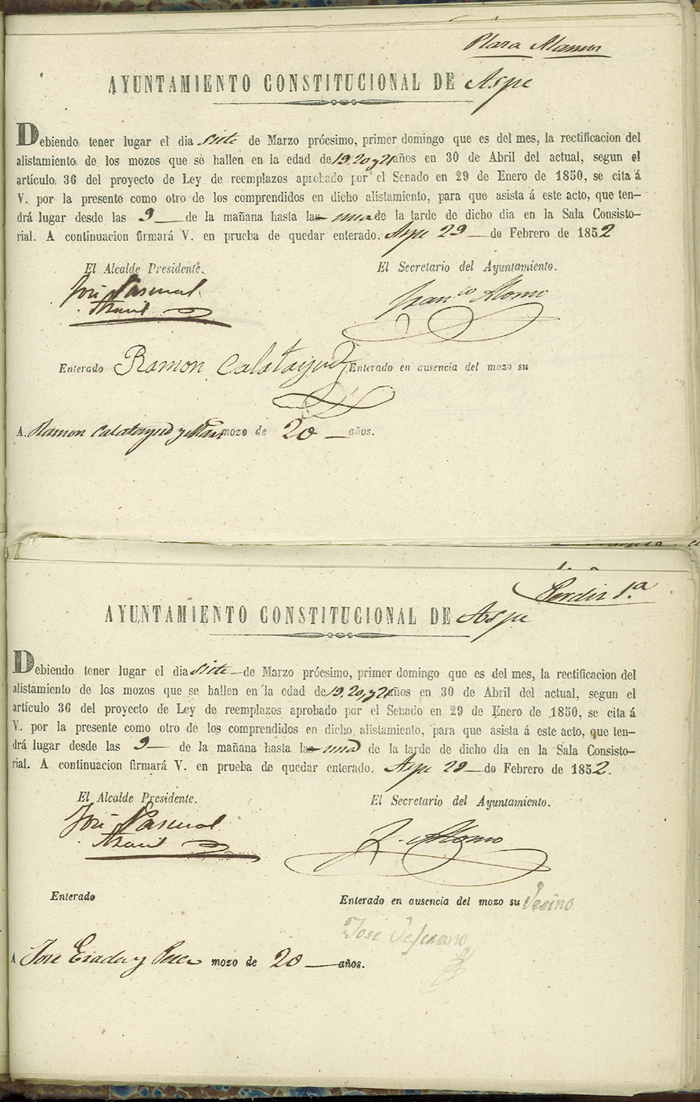 Plaza
AYUNTAMIENTO CONSTITUCIONAL DE Aspe
Debiendo tener lugar el dia siete de Marzo prócsimo, primer domingo que es del mes, la rectificacion del
alistamiento de los mozos que se hallen en la edad de 19, 20 y 21 años en 30 de Abril del actual, segun el
artículo 36 del proyecto de Ley de reemplazos aprobado por el Senado en 29 de Enero de 1850, se cita á
V. por la presente como otro de los comprendidos en dicho alistamiento, para que asista á este acto, que ten-
drá lugar desde las 9 de la mañana hasta la una de la tarde de dicho dia en la Sala Consisto-
rial. A continuacion firmará V. en prueba de quedar enterado. Aspe 29 de Febrero de 1852
El Alcalde Presidente. El Secretario del Ayuntamiento.
José Pascual Franco Alonso
Enterado Ramon Calatayud Enterado en ausencia del mozo su
A Ramon Calatayud y mozo de 20 años.
1.a
AYUNTAMIENTO CONSTITUCIONAL DE Aspe
Debiendo tener lugar el dia siete de Marzo prócsimo, primer domingo que es del mes, la rectificacion del
alistamiento de los mozos que se hallen en la edad de 19, 20 y 21 años en 30 de Abril del actual, segun el
artículo 36 del proyecto de Ley de reemplazos aprobado por el Senado en 29 de Enero de 1850, se cita á
V. por la presente como otro de los comprendidos en dicho alistamiento, para que asista á este acto, que ten-
drá lugar desde las 9 de la mañana hasta la una de la tarde de dicho dia en la Sala Consisto-
rial. A continuacion firmará V. en prueba de quedar enterado. Aspe 29 de Febrero de 1852.
El Alcalde Presidente. El Secretario del Ayuntamiento.
José Pascual F. Alonso
Enterado Enterado en ausencia del mozo su Vecino
José
A Jose mozo de 20 años.